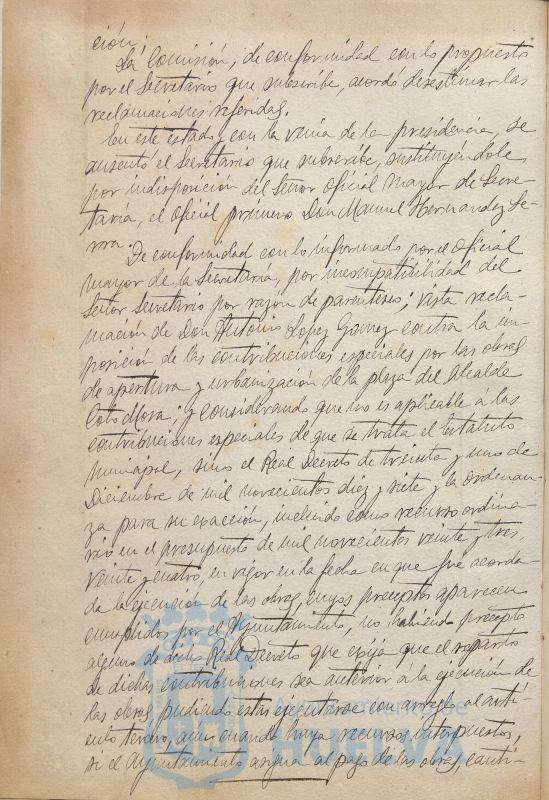 ción.
La Comisión, de conformidad con lo propuesto
por el Secretario que suscribe, acordó desestimar las
reclamaciones referidas.
En este estado, con la venia de la presidencia, se
ausentó el Secretario que subscribe, sustituyéndole
por indisposición del Señor Oficial Mayor de Secre-
taría, el Oficial primero Don Manuel Hernandez Se-
rra.
De conformidad con lo informado por el Oficial
mayor de la Secretaría, por incompatibilidad del
Señor Secretario por razón de parentesco; vista recla-
mación de Don Antonio Lopez Gomez contra la im-
posición de las contribuciones especiales por las obras
de apertura y urbanización de la plaza del Alcalde
Coto Mora; y considerando que no es aplicable a las
contribuciones especiales de que se trata el Estatuto
municipal, sino el Real Decreto de treinta y uno de
Diciembre de mil novecientos diez y siete y la ordenan-
za para su exacción, incluido como recurso ordina-
rio en el presupuesto de mil novecientos veinte y tres,
veinte y cuatro, en vigor en la fecha en que fué acorda-
da la ejecución de las obras, cuyos preceptos aparecen
cumplidos por el Ayuntamiento, no habiendo precepto
alguno de dicho Real Decreto que exija que el reparto
de dichas contribuciones sea anterior á la ejecución de
las obras, pudiendo estas ejecutarse con arreglo al artí-
culo tercero, aun cuando haya recursos interpuestos,
si el Ayuntamiento asegura el pago de las obras, canti-
HUELVA